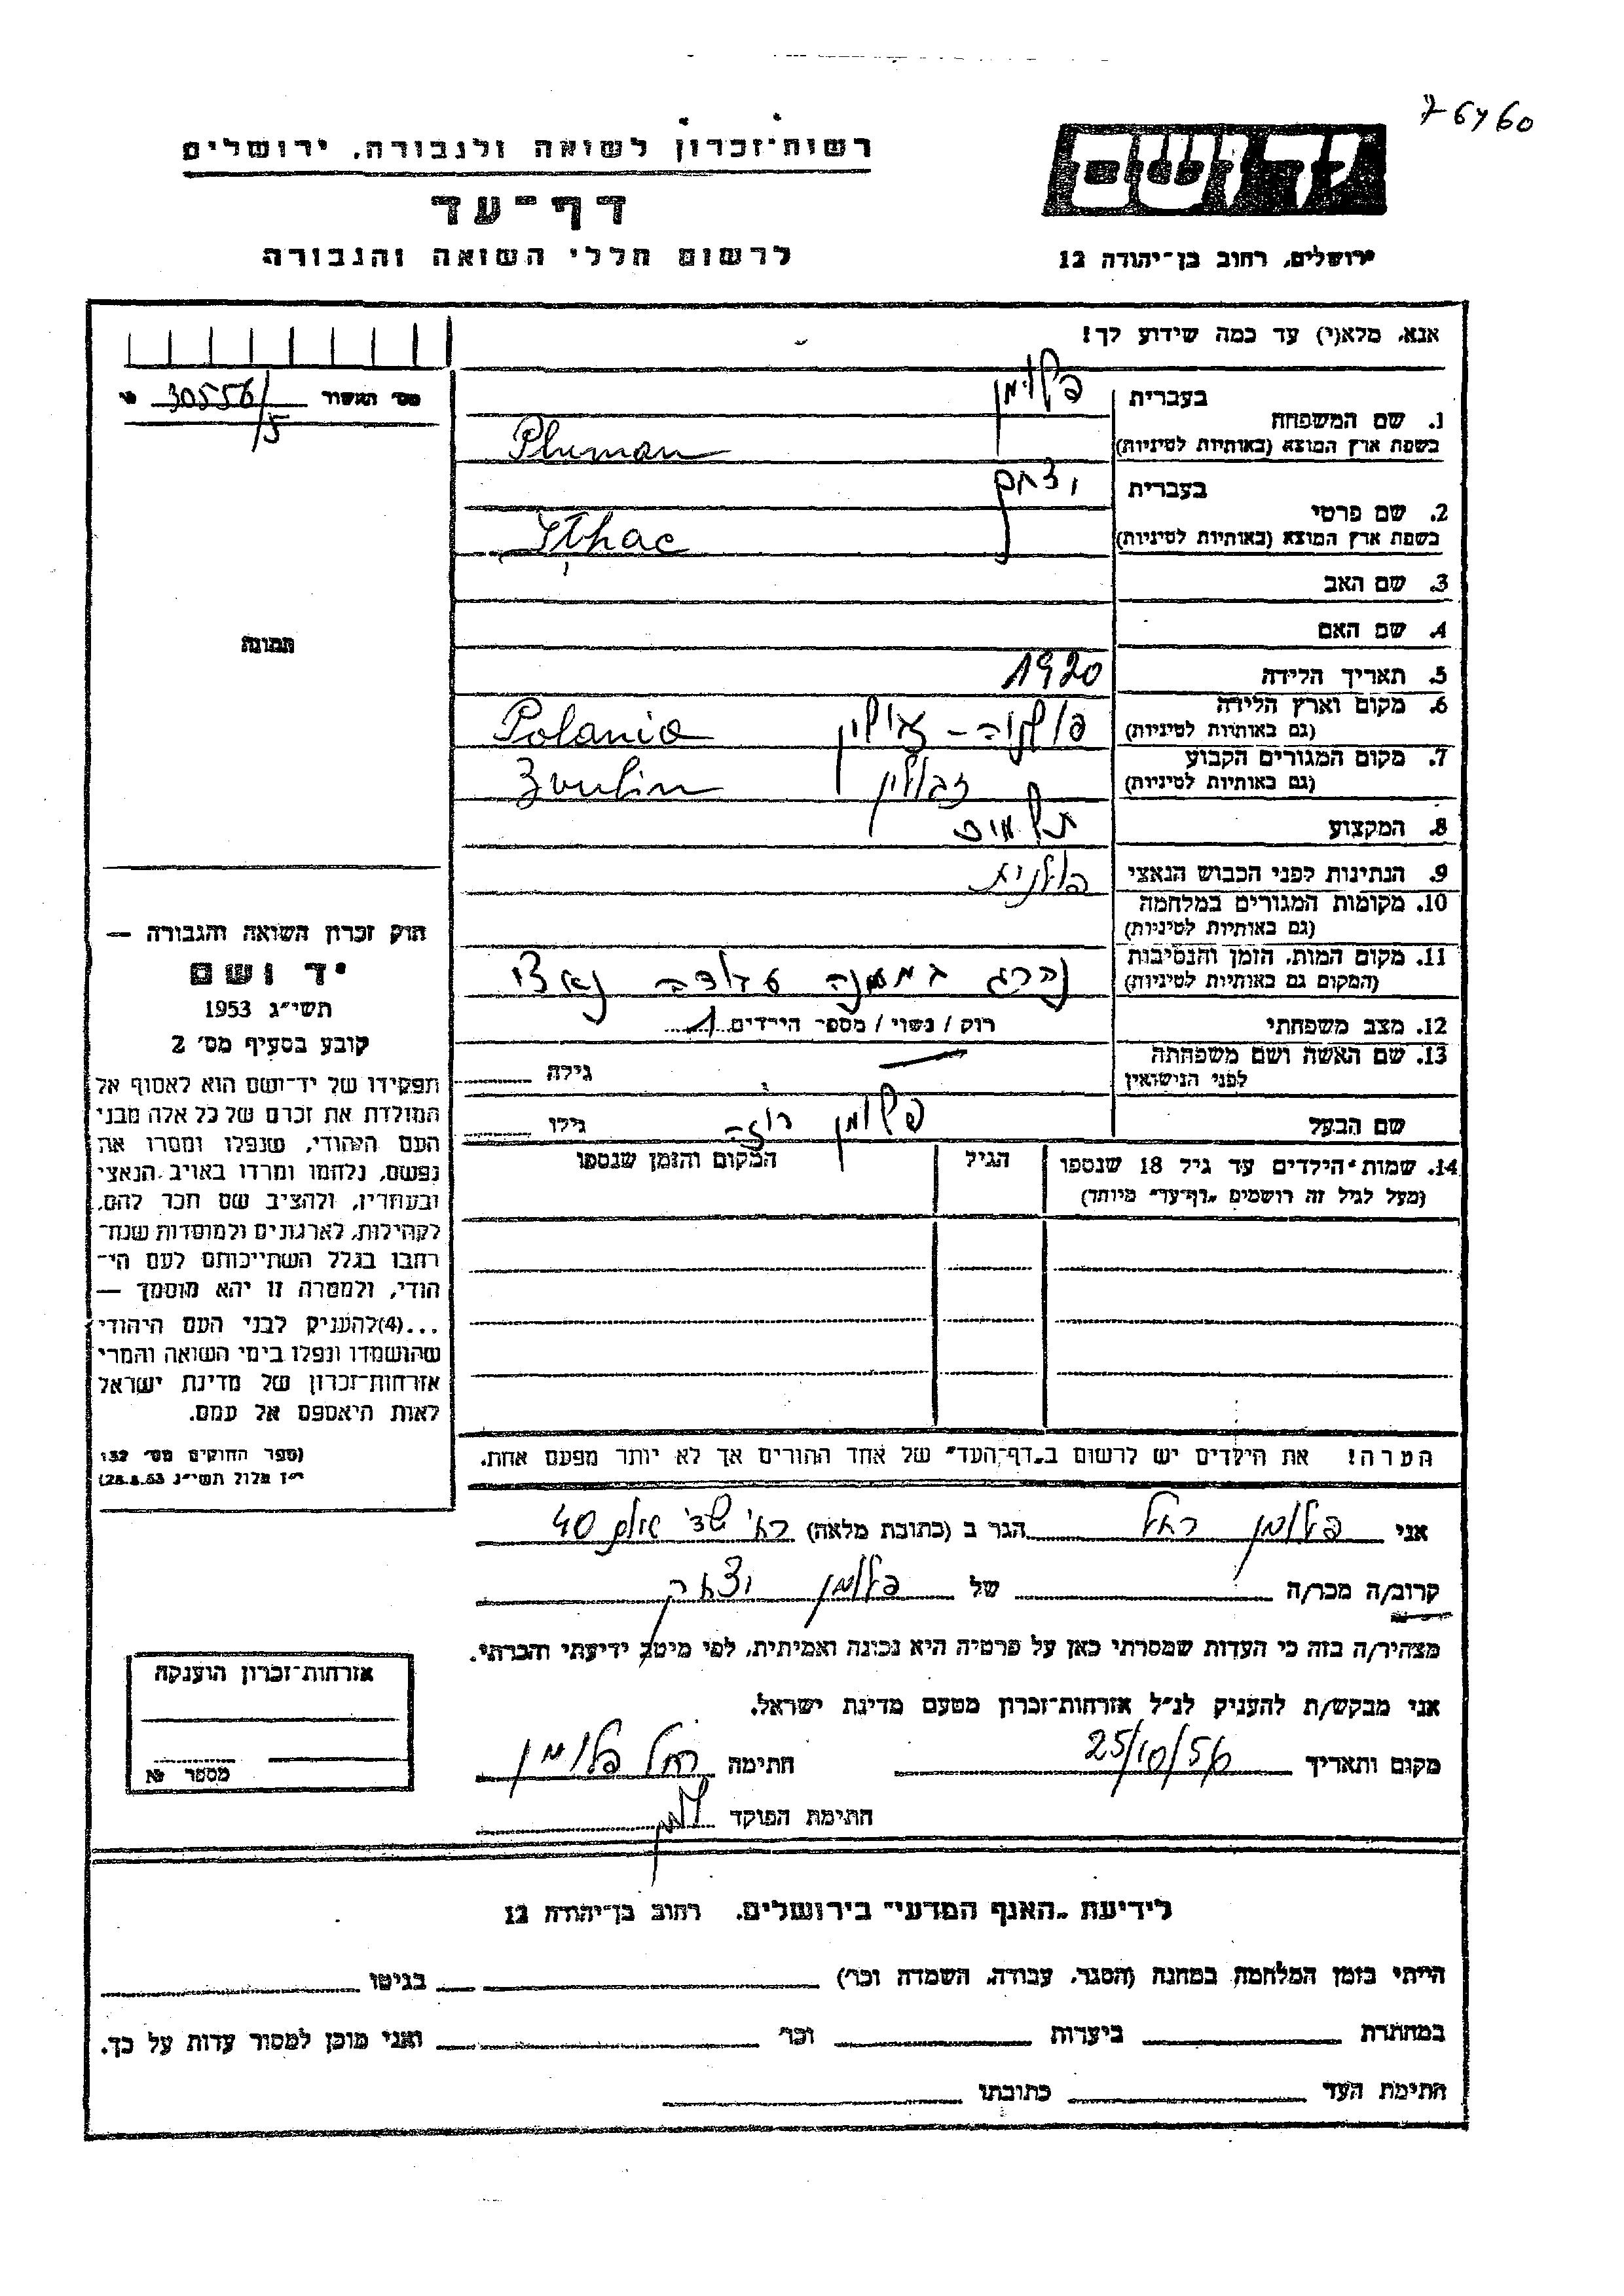 76460
רשות־זכרון לשואה ולגבורה, ירושלים
דף־עד
לרשום חללי השואה והגבורה
יד ושם
ירושלים, רחוב בן־יהודה 12
אנא, מלא(י) עד כמה שידוע לך!
מס' האשור 30556/5
1. שם המשפחה
בעברית פלומן
בשפת ארץ המוצא (באותיות לטיניות) Pluman
2. שם פרטי
בעברית יצחק
בשפת ארץ המוצא (באותיות לטיניות) Ythac
3. שם האב
4. שם האם
5. תאריך הלידה 1920
6. מקום וארץ הלידה
(גם באותיות לטיניות) פולניה – Polania
7. מקום המגורים הקבוע
(גם באותיות לטיניות) Zvulin
8. המקצוע
9. הנתינות לפני הכבוש הנאצי פולנית
10. מקומות המגורים במלחמה
(גם באותיות לטיניות)
11. מקום המות, הזמן והנסיבות
(המקום גם באותיות לטיניות) נהרג במחנה עבודה נאצי
12. מצב משפחתי רוק / נשוי / מספר הילדים 1
13. שם האשה ושם משפחתה
לפני הנישואין גילה
שם הבעל פלומן גילו
14. שמות הילדים עד גיל 18 שנספו הגיל המקום והזמן שנספו
(מעל לגיל זה רושמים „דף־עד" מיוחד)
הערה! את הילדים יש לרשום ב„דף־העד" של אחד ההורים אך לא יותר מפעם אחת.
תמונה
חוק זכרון השואה והגבורה —
יד ושם
תשי"ג 1953
קובע בסעיף מס' 2
תפקידו של יד־ושם הוא לאסוף אל
המולדת את זכרם של כל אלה מבני
העם היהודי, שנפלו ומסרו את
נפשם, נלחמו ומרדו באויב הנאצי
ובעוזריו, ולהציב שם וזכר להם,
לקהילות, לארגונים ולמוסדות שנח־
רבו בגלל השתייכותם לעם הי־
הודי, ולמטרה זו יהא מוסמך —
...(4) להעניק לבני העם היהודי
שהושמדו ונפלו בימי השואה והמרי
אזרחות־זכרון של מדינת ישראל
לאות היאספם אל עמם.
(ספר החוקים מס' 132
י"ז אלול תשי"ג 28.8.53)
אני פלומן רחל הגר ב (כתובת מלאה) 40
קרוב/ה מכר/ה של פלומן יצחק
מצהיר/ה בזה כי העדות שמסרתי כאן על פרטיה היא נכונה ואמיתית, לפי מיטב ידיעתי והכרתי.
אני מבקש/ת להעניק לנ"ל אזרחות־זכרון מטעם מדינת ישראל.
מקום ותאריך 25/10/56 חתימה רחל פלומן
חתימת הפוקד
אזרחות־זכרון הוענקה
מספר №
לידיעת „האגף המדעי" בירושלים, רחוב בן־יהודה 12
הייתי בזמן המלחמה במחנה (הסגר, עבודה, השמדה וכו') בגיטו
במחתרת ביערות וכו' ואני מוכן למסור עדות על כך.
חתימת העד כתובתו